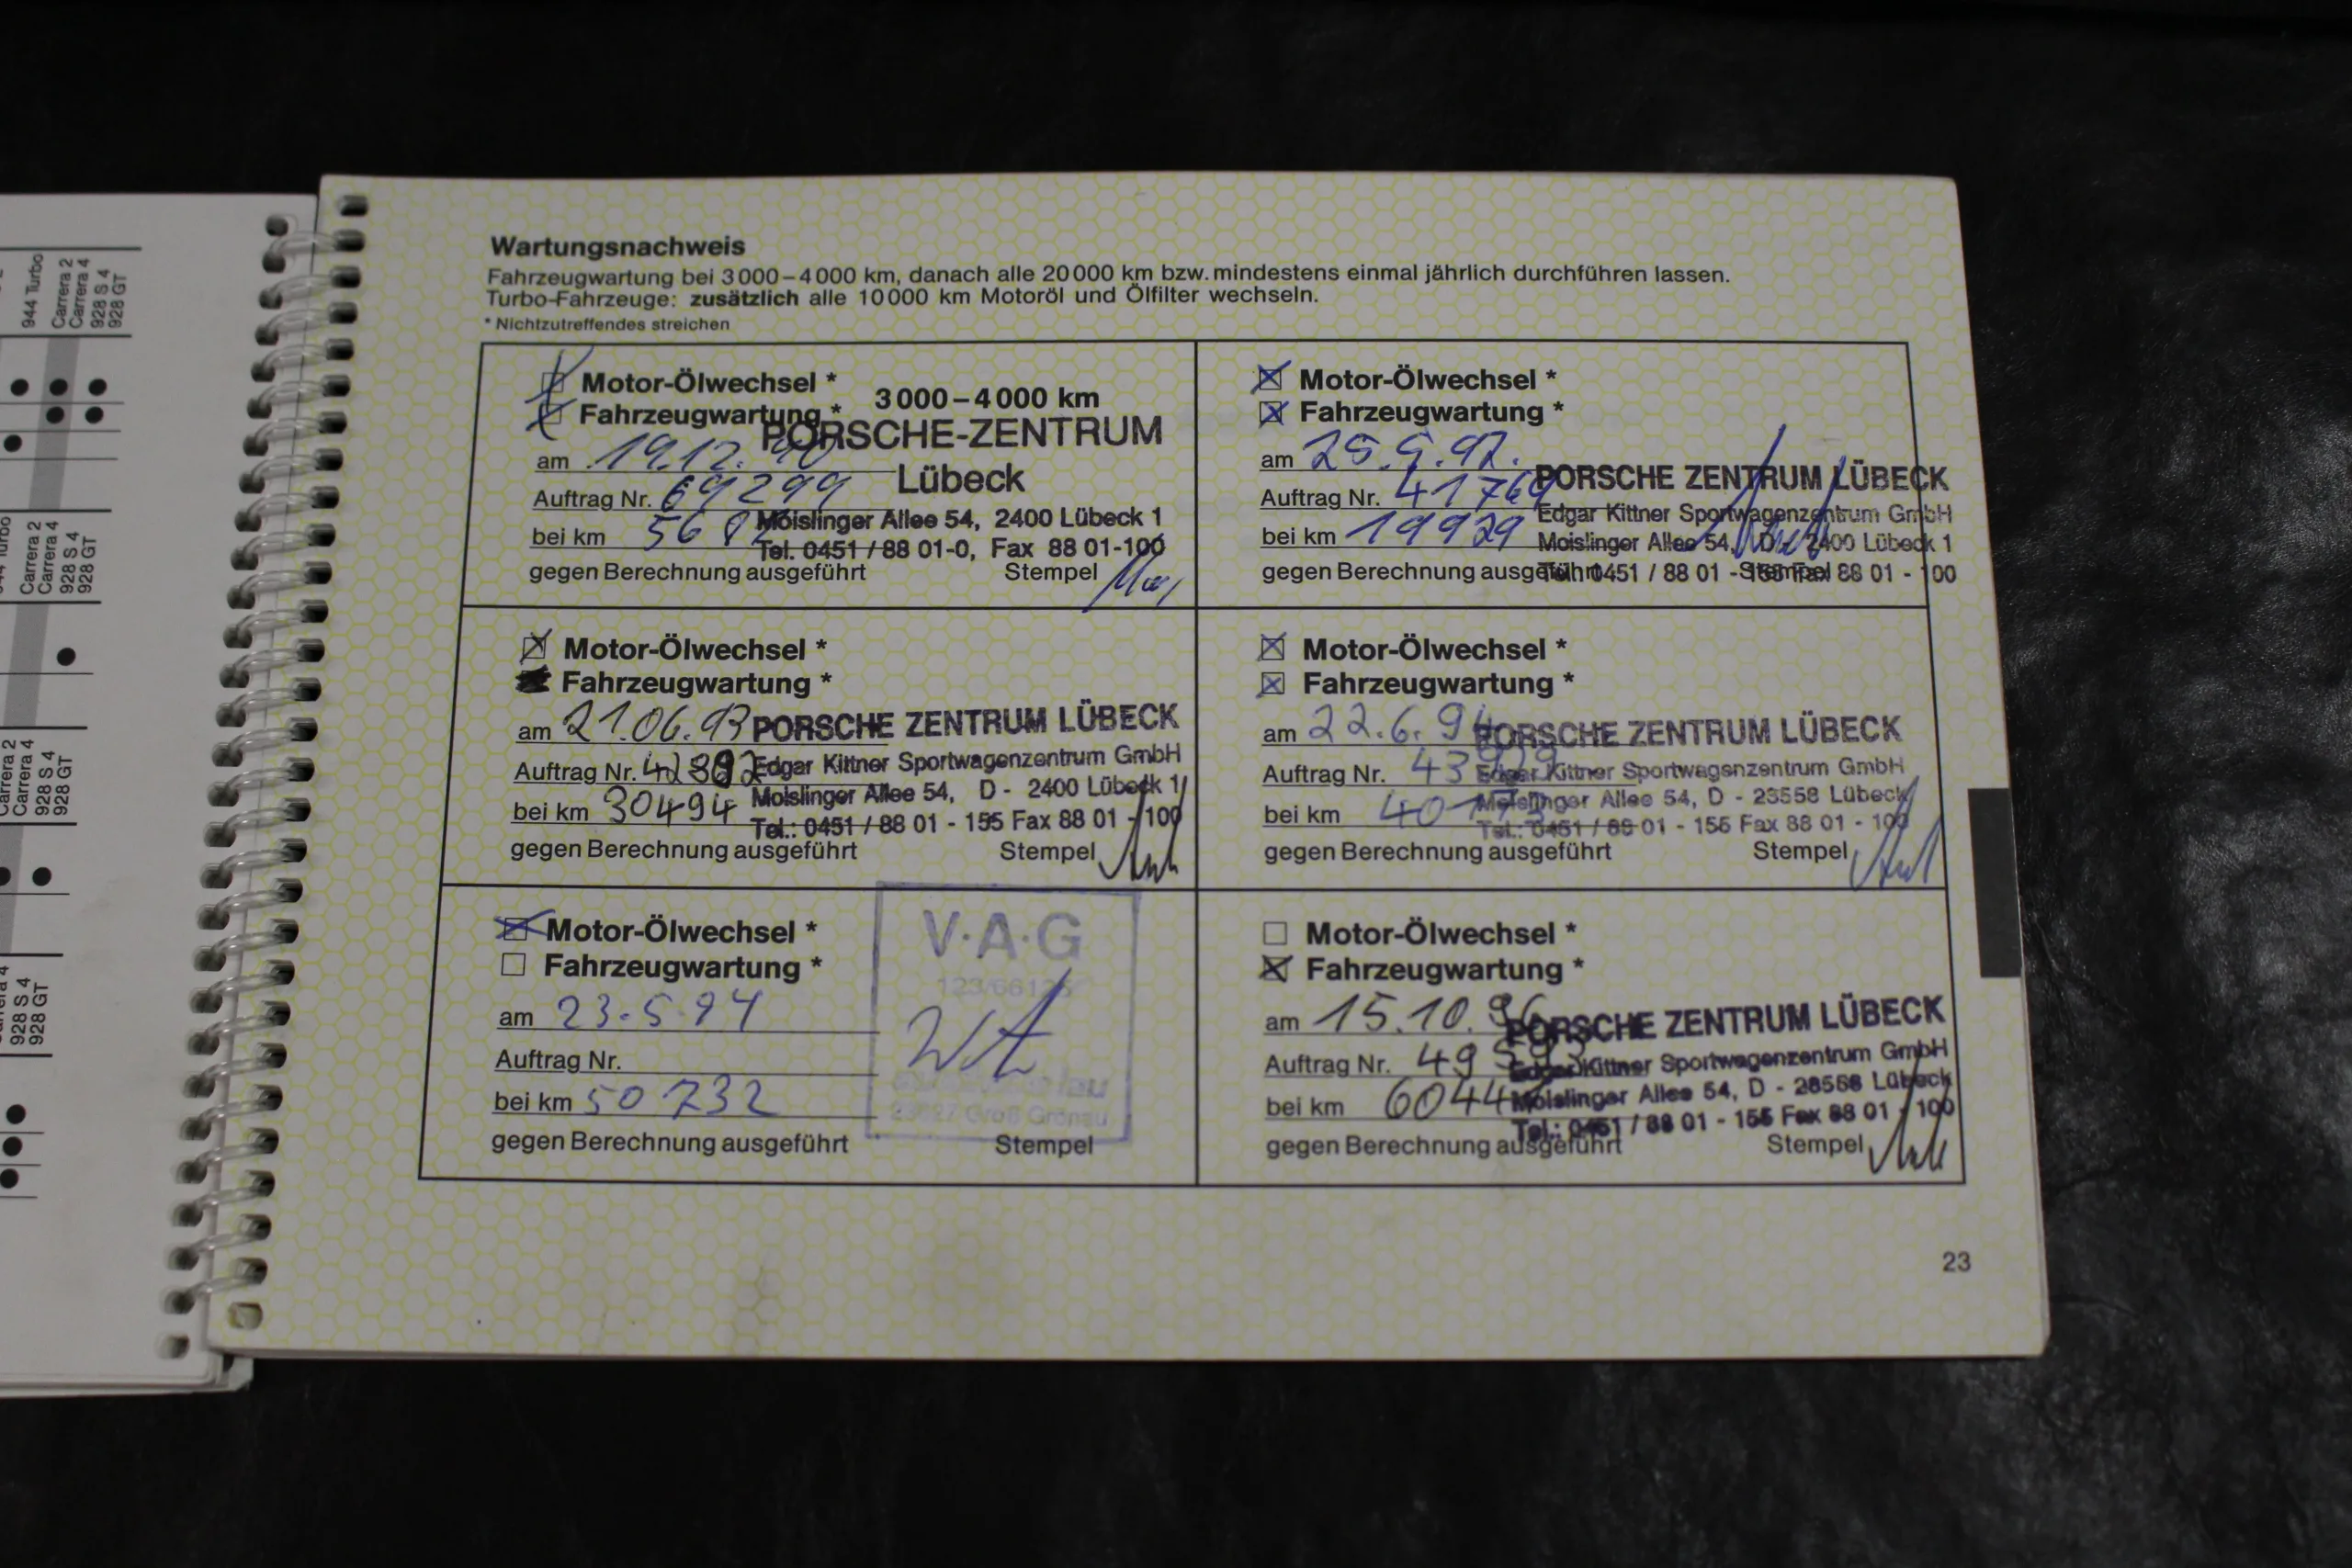 944 Turbo
Carrera 2
Carrera 4
928 S 4
928 GT
Carrera 2
Carrera 4
928 S 4
928 GT
Carrera 2
Carrera 4
928 S 4
928 GT
928 S 4
928 GT
Wartungsnachweis
Fahrzeugwartung bei 3000–4000 km, danach alle 20000 km bzw. mindestens einmal jährlich durchführen lassen.
Turbo-Fahrzeuge: zusätzlich alle 10000 km Motoröl und Ölfilter wechseln.
* Nichtzutreffendes streichen
Motor-Ölwechsel *
Fahrzeugwartung *
3000–4000 km
PORSCHE-ZENTRUM
Lübeck
Moislinger Allee 54, 2400 Lübeck 1
Tel. 0451 / 88 01-0, Fax 88 01-100
am 19.12.90
Auftrag Nr. 69299
bei km
gegen Berechnung ausgeführt Stempel
Motor-Ölwechsel *
Fahrzeugwartung *
am
Auftrag Nr. 41769
bei km 19929
PORSCHE ZENTRUM LÜBECK
Edgar Kittner Sportwagenzentrum GmbH
Moislinger Allee 54, D - 2400 Lübeck 1
Tel.: 0451 / 88 01 - 155 Fax 88 01 - 100
gegen Berechnung ausgeführt Stempel
Motor-Ölwechsel *
Fahrzeugwartung *
am 21.06.93
Auftrag Nr.
bei km 30494
PORSCHE ZENTRUM LÜBECK
Edgar Kittner Sportwagenzentrum GmbH
Moislinger Allee 54, D - 2400 Lübeck 1
Tel.: 0451 / 88 01 - 155 Fax 88 01 - 100
gegen Berechnung ausgeführt Stempel
Motor-Ölwechsel *
Fahrzeugwartung *
am 22.6.94
Auftrag Nr.
bei km
PORSCHE ZENTRUM LÜBECK
Edgar Kittner Sportwagenzentrum GmbH
Moislinger Allee 54, D - 23558 Lübeck
Tel.: 0451 / 88 01 - 155 Fax 88 01 - 100
gegen Berechnung ausgeführt Stempel
Motor-Ölwechsel *
Fahrzeugwartung *
am
Auftrag Nr.
bei km 50732
V·A·G
Groß Grönau
gegen Berechnung ausgeführt Stempel
Motor-Ölwechsel *
Fahrzeugwartung *
am 15.10.96
Auftrag Nr.
bei km
PORSCHE ZENTRUM LÜBECK
Edgar Kittner Sportwagenzentrum GmbH
Moislinger Allee 54, D - 23558 Lübeck
Tel.: 0451 / 88 01 - 155 Fax 88 01 - 100
gegen Berechnung ausgeführt Stempel
23